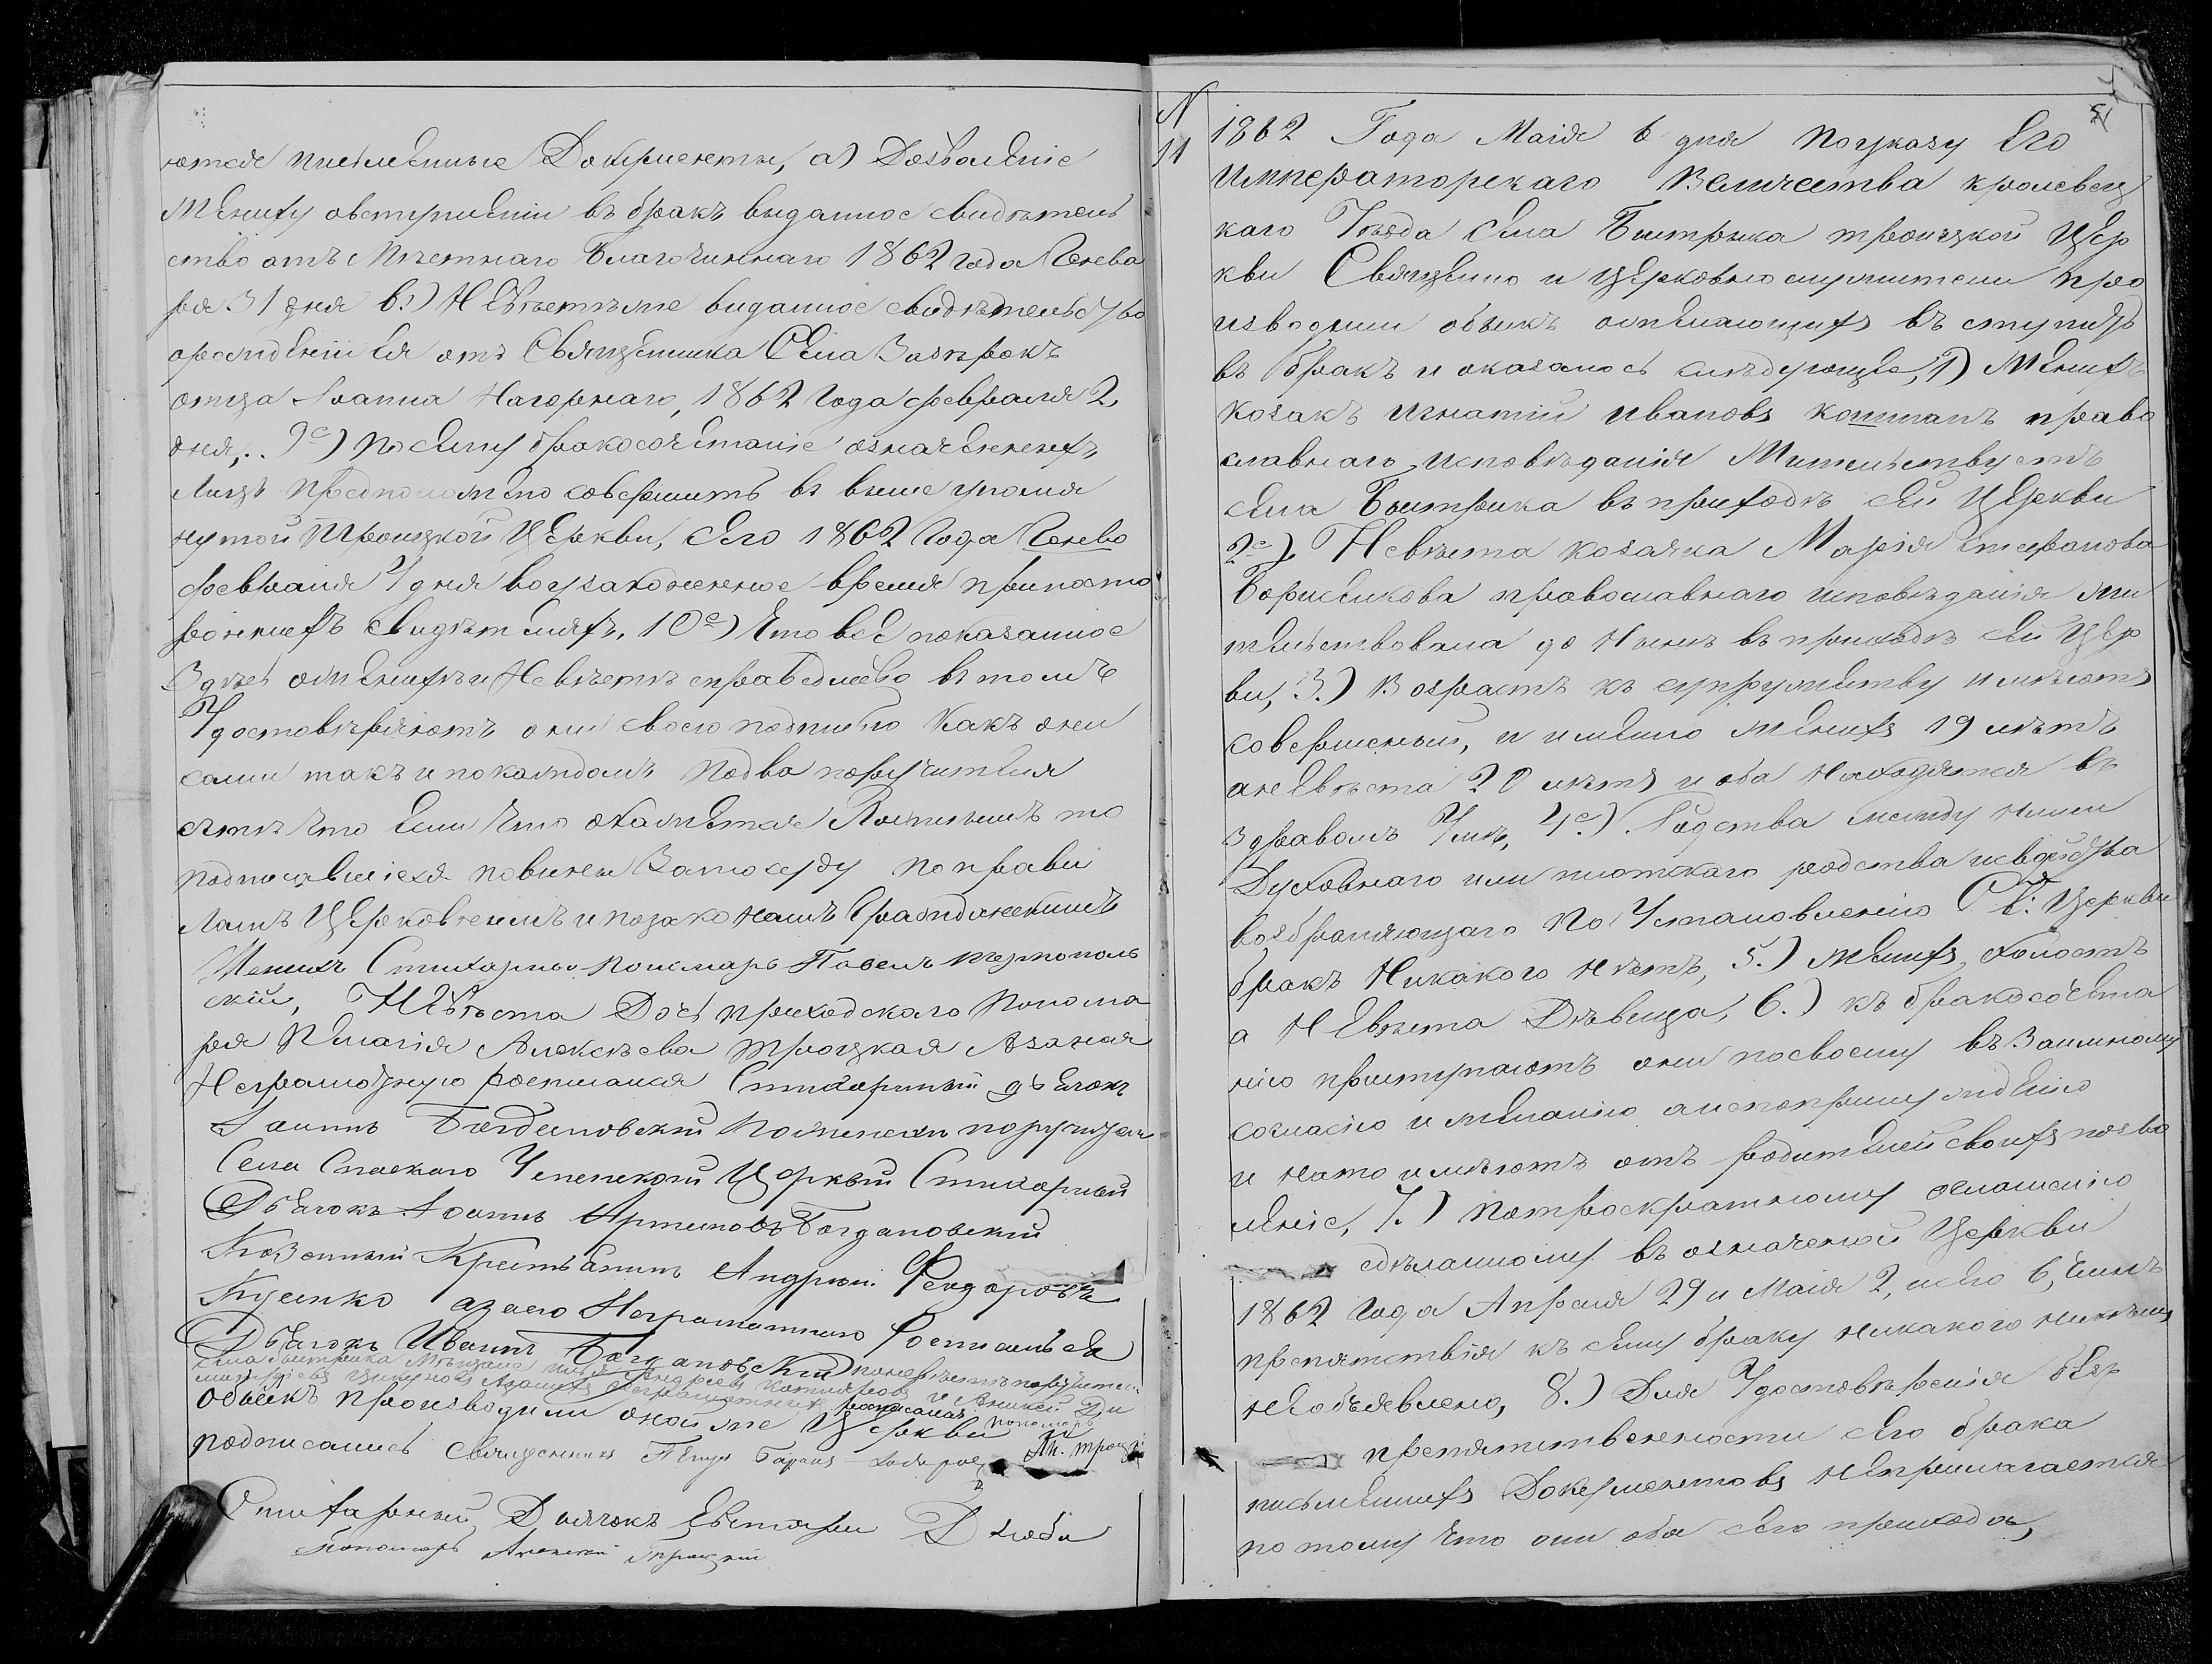 ются письменные Документы, а) Дозволеніе
Жениху овступленіи въ бракъ выданное свидѣтель
ство отъ Мѣстнаго Благочиннаго 1862 года Генева
ря 31 дня в:) Невѣстѣже виданное свидѣтельство
орожденіи Ея отъ Священника Села
отца Іоанна Нагорнаго, 1862 Года февраля 2
дня,.. 9е) По сему бракосочетаніе означенныхъ
Лицъ предположено совершить въ вышеупомя
нутой Троицкой Церкви, Сего 1862 Года Генево
февраля 4 дня воузаконенное время припосто
роннихъ Свидѣтеляхъ. 10е) Что всё показанное
Здѣсь ожених и Невѣстѣ справедливо въ томъ
Удостовѣряютъ они своею подписью Какъ они
сами такъ и покаждомъ подва поручителя
стѣмъ Что Если Что окажется Ложнымъ то
подписавшіеся повинны Затосуду по прави
ламъ Церковнымъ и позаконамъ Гражданскимъ
Женихъ Стихарный Пономарь Павелъ Тарнополь
скій, Невѣста Дочь приходскаго Понома
ря Пелагія Алексѣева Троцкая Азаная
Неграмотную росписался Стихарный дьЯчокъ
Іоаннъ Богдановскій Поженихѣ поручители
Села Спаскаго Успенской Церквы Стихарный
ДьЯчокъ Іоаннъ Артемовъ Богдановскій
Козенный Крестьянинъ Андрей Феодоровъ
азаего Неграмотнаго Росписался
ДьЯчокъ Иванъ Богдановскій поневѣстѣ поручители
Села Быстрика Мѣщане Андреевъ и Ди
митріевъ Азанихъ Неграмотныхъ росписался пономарь
Обыскъ производили оноѣ же Церкви Ал. Троцкій
подписались Священникъ
Стихарный Дьячокъ Евстафій Дзюба
Пономарь Алексѣй Троцкій
N
11
1862 Года Маія 6 дня Поуказу Его
Императорскаго Величества кролевец
каго Уѣзда Села Быстрика троицкой Цер
кви Священно и Церковнослужители про
изводили обыскъ ожелающихъ въступить
въ бракъ и оказалось слѣдующее, 1) Женихъ
Козакъ Игнатій Ивановъ Коштанъ право
славнаго исповѣданія Жительствуетъ
села Быстрика въ приходѣ сей Церкви
2е) Невѣста козачка Марія Стефанова
Борисенкова православнаго исповѣданія жи
тельствовала до Нынѣ въ приходѣ сей Цер
ви, 3.) Возрастъ къ супружеству имѣютъ
совершенный, и именно женихъ 19 лѣтъ
аневѣста 20 лѣтъ и оба Находятся въ
здравомъ Умѣ, 4е.) Родства между ними
Духовнаго или плотскаго родства исвойства
возбраняющаго по Установленію Св: Церкви
бракъ Никакого нѣтъ, 5.) Женихъ холостъ
а Невѣста Дѣвица, 6.) къ бракосочета
нію приступаютъ они посвоему въЗаимному
согласію и желанію анепопринужденію
и нато имѣютъ отъ родителей своихъ позво
леніе, 7.) Потроекратному оглашенію
сдѣланному въ означеной Церкви
1862 Года Апреля 29 и Маія 2, исего 6, Числъ
препятствія къ сему браку никакого никѣмъ
необъявлено, 8.) Для Удостовѣренія безъ
препятственности сего брака
письменныхъ Документовъ неприлагается
потому что они оба сего прихода,